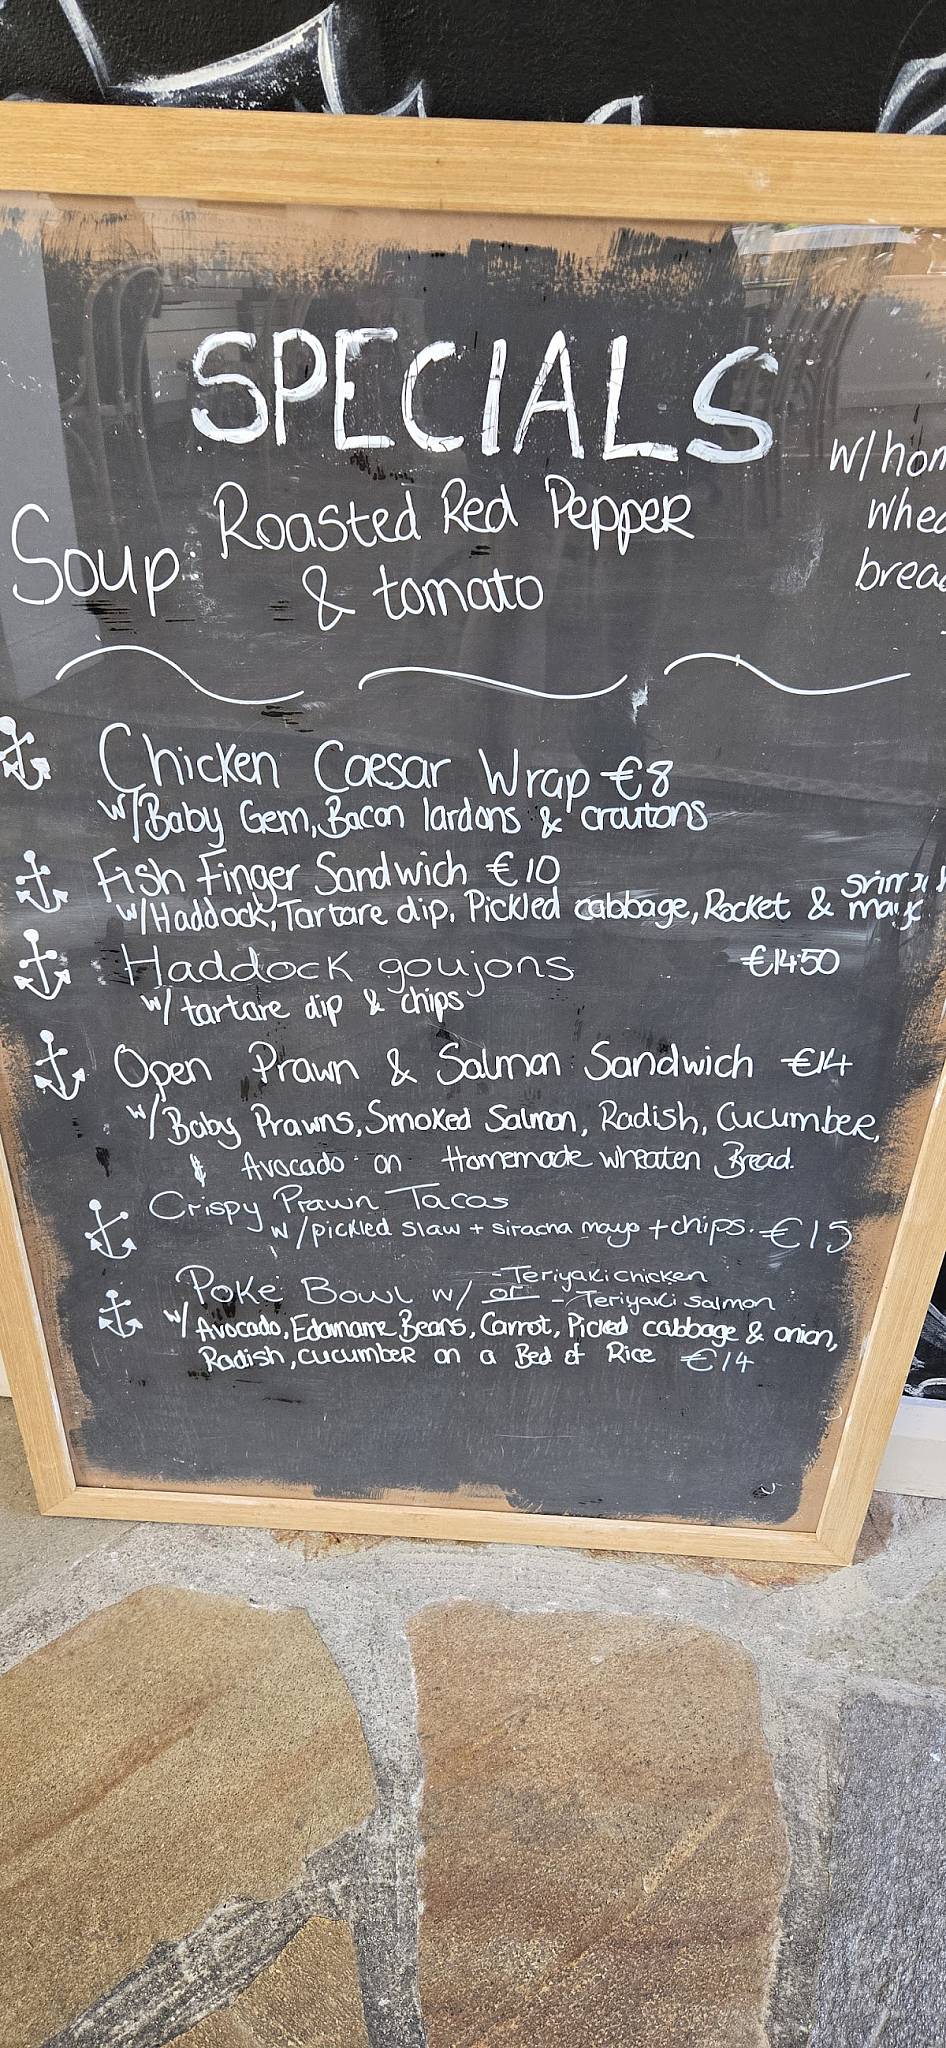 SPECIALS
Soup: Roasted Red Pepper
& tomato
w/hom
whea
bread
Chicken Caesar Wrap €8
w/Baby Gem, Bacon lardons & croutons
Fish Finger Sandwich €10
w/Haddock, Tartare dip, Pickled cabbage, Rocket & mayo
Haddock goujons €14.50
w/ tartare dip & chips
Open Prawn & Salmon Sandwich €14
w/Baby Prawns, Smoked Salmon, Radish, Cucumber,
& Avocado on Homemade wheaten Bread.
Crispy Prawn Tacos
w/pickled slaw + siracha mayo + chips. €15
Poke Bowl w/ - Teriyaki chicken
or - Teriyaki salmon
w/ Avocado, Edamame Beans, Carrot, Picked cabbage & onion,
Radish, cucumber on a Bed of Rice €14